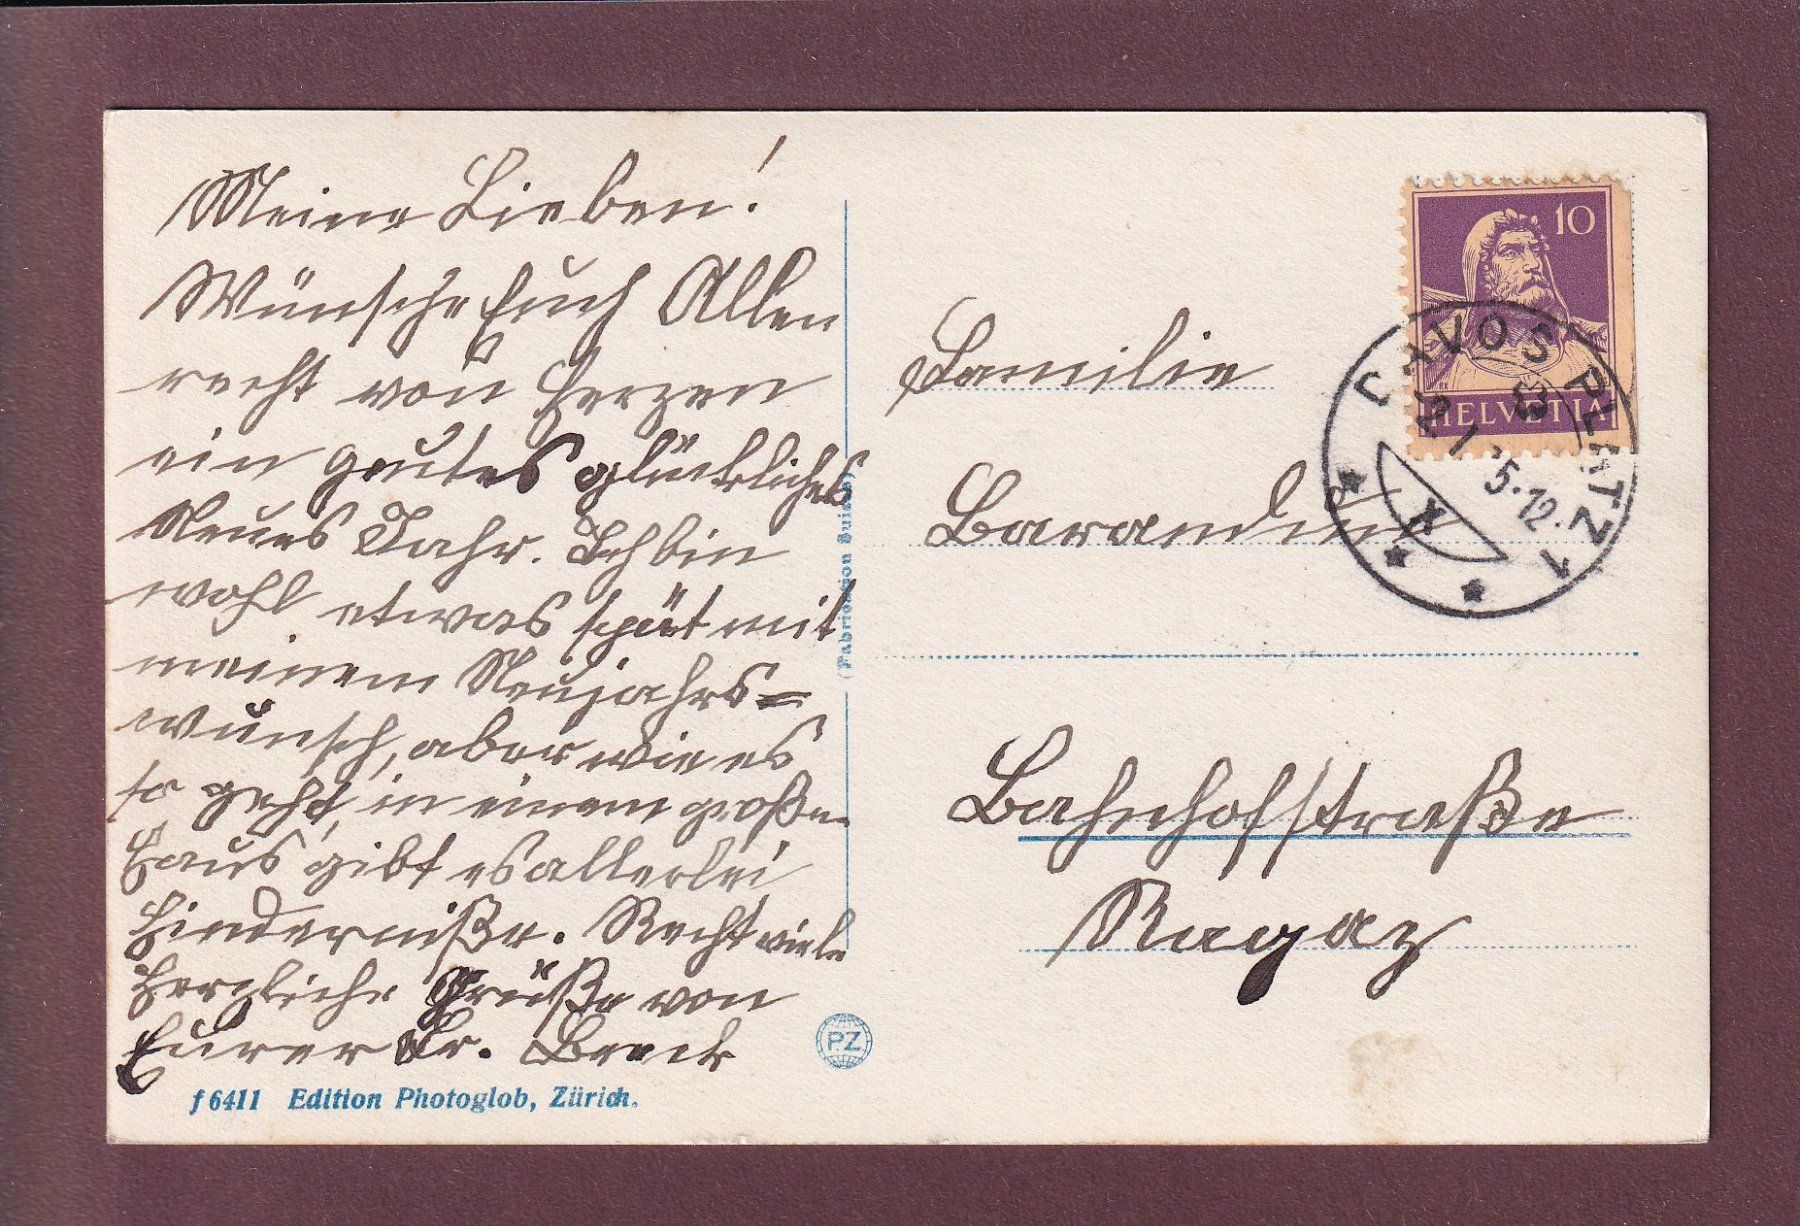 Meine Lieben!
Wünsche Euch Allen
recht von Herzen
ein gutes glückliches
Neues Jahr. Ich bin
wohl etwas spät mit
meinem Neujahrs=
wunsch, aber wie es
so geht, in einem große.
Haus gibt es allerlei
Hinderniße. Recht viele
Herzliche Grüße von
Eurer Fr. Brack
f 6411 Edition Photoglob, Zürich.
(Fabrication Suisse)
PZ
10
HELVETIA
DAVOS PLATZ 1
5.12.
X
Familie
Barandun
Bahnhofstraße
Ragaz